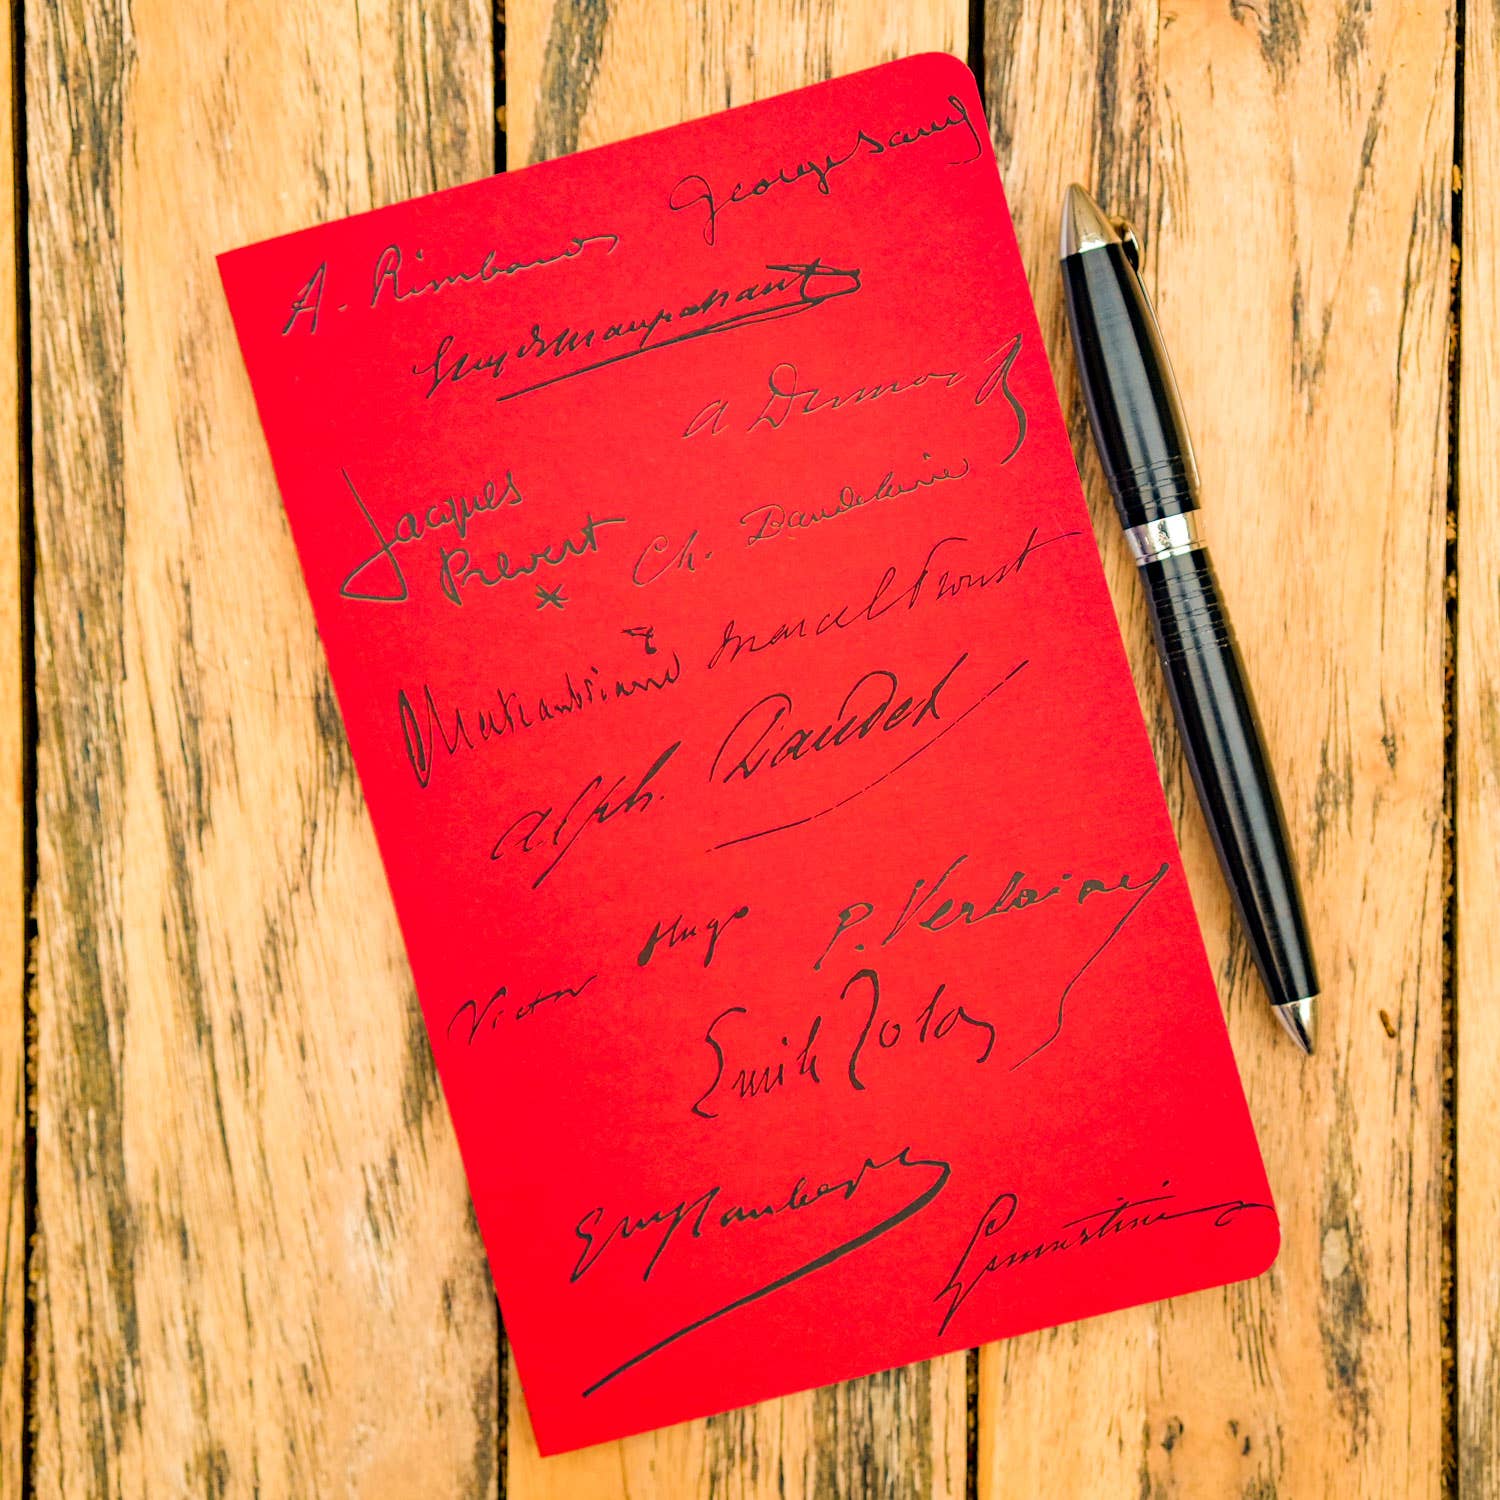 A. Rimbaud
George Sand
Guy de Maupassant
A Dumas
Jacques
Prévert
Ch. Baudelaire
Chateaubriand
Marcel Proust
Alph. Daudet
Victor Hugo
P. Verlaine
Emile Zola
Gve Flaubert
Lamartine